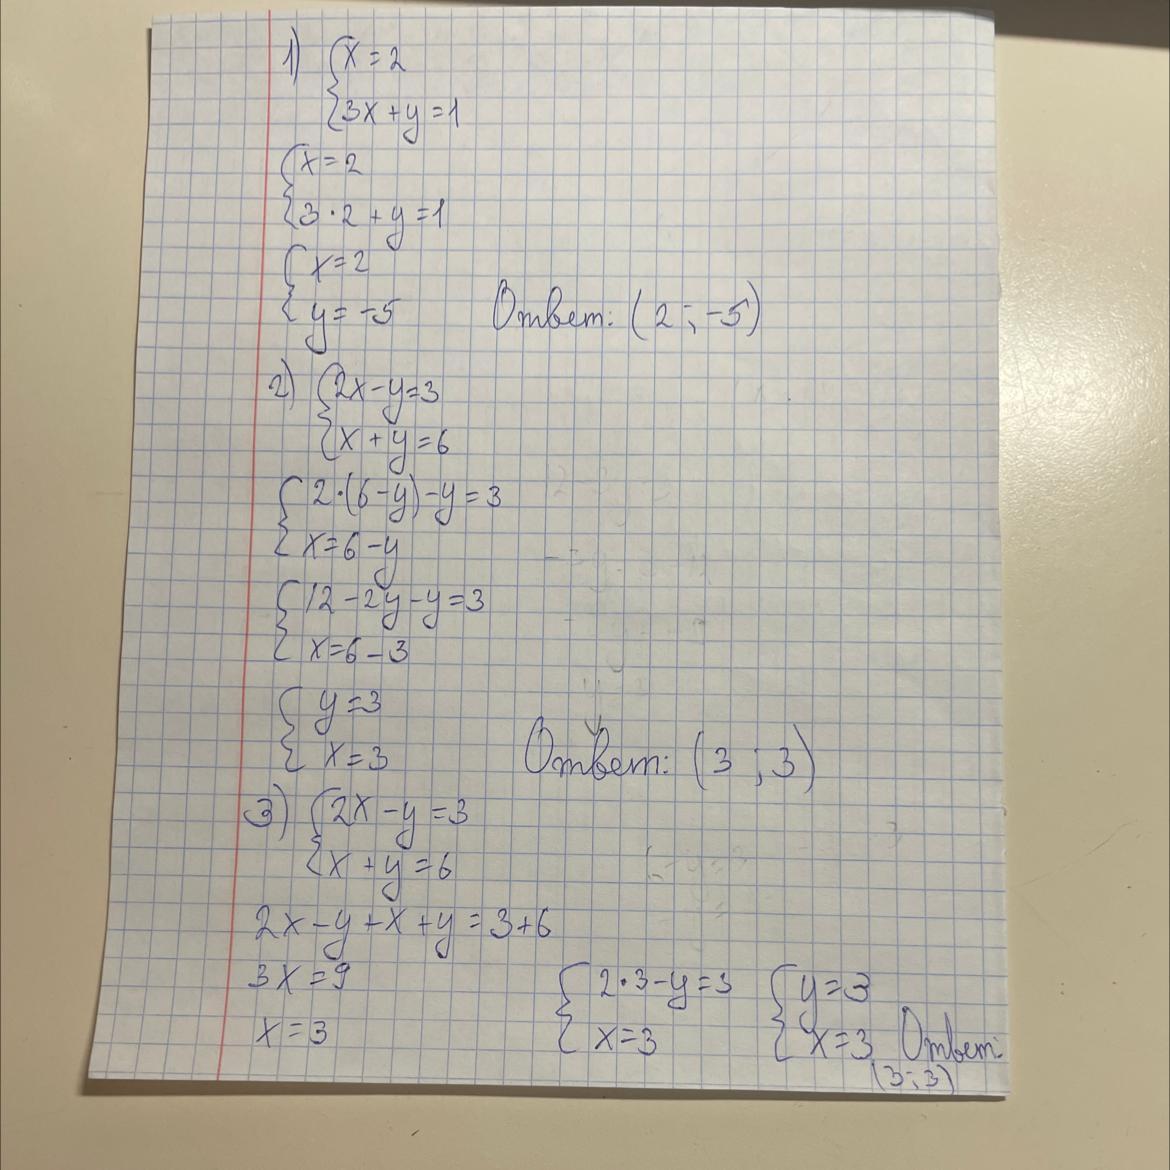 1) { x = 2
{ 3x + y = 1
{ x = 2
{ 3 · 2 + y = 1
{ x = 2
{ y = -5 Ответ: (2 ; -5)
2) { 2x - y = 3
{ x + y = 6
{ 2 · (6 - y) - y = 3
{ x = 6 - y
{ 12 - 2y - y = 3
{ x = 6 - 3
{ y = 3
{ x = 3 Ответ: (3 ; 3)
3) { 2x - y = 3
{ x + y = 6
2x - y + x + y = 3 + 6
3x = 9 { 2 · 3 - y = 3 { y = 3
x = 3 { x = 3 { x = 3 Ответ:
(3 ; 3)